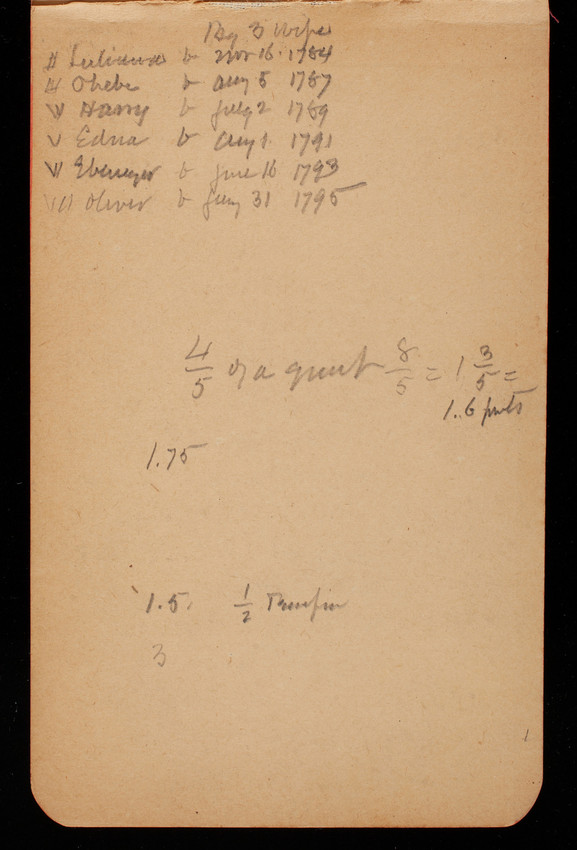 By 3 Wife
Juliana b Nov 16 1784
Phebe b Aug 5 1787
Harry b July 2 1789
V Edna b Aug 1 1791
Ebenezer b June 16 1793
Oliver b Jany 31 1795
4/5 of a quart 8/5 = 1 3/5 =
1.6 pints
1.75
1.5. 1/2
3